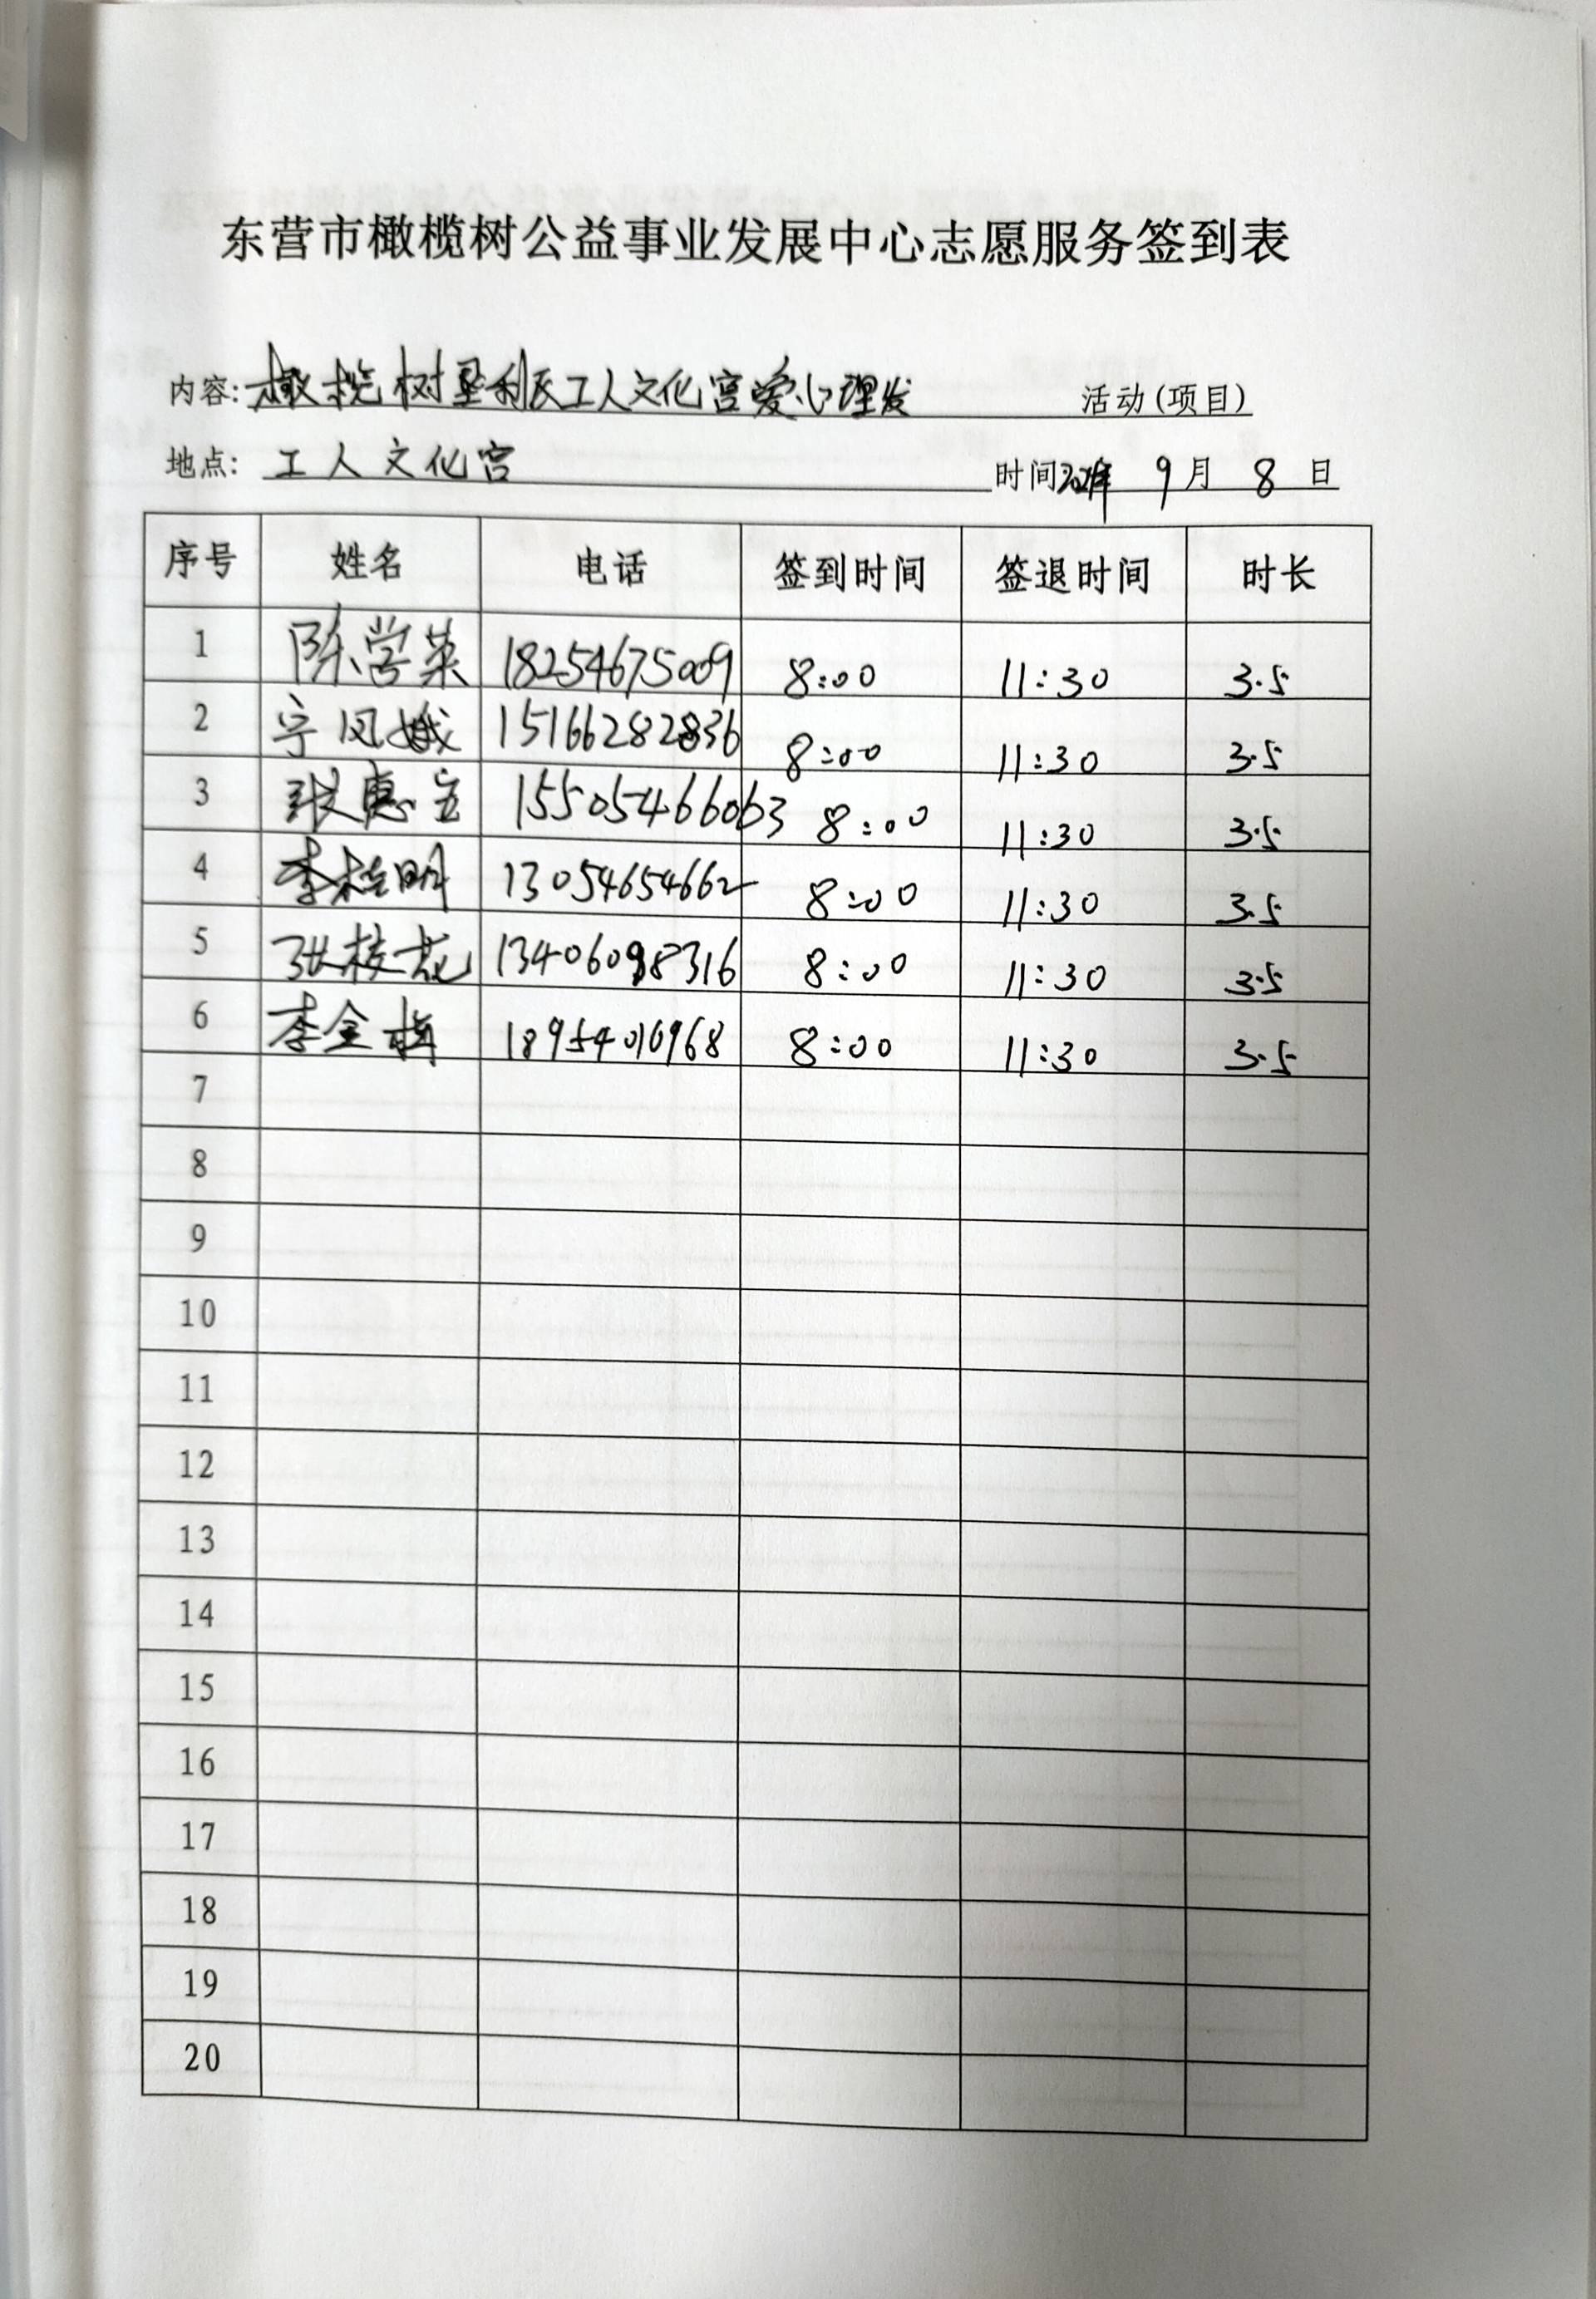 东营市橄榄树公益事业发展中心志愿服务签到表
内容: 橄榄树垦利区工人文化宫爱心理发 活动(项目)
地点: 工人文化宫 时间: 9月 8 日
序号 姓名 电话 签到时间 签退时间 时长
1 陈学英 18254675009 8:00 11:30 3.5
2 宁凤娥 15166282836 8:00 11:30 3.5
3 张惠 15505466063 8:00 11:30 3.5
4 李桂明 13054654662 8:00 11:30 3.5
5 张枝花 13406098316 8:00 11:30 3.5
6 李金梅 18954016968 8:00 11:30 3.5
7
8
9
10
11
12
13
14
15
16
17
18
19
20